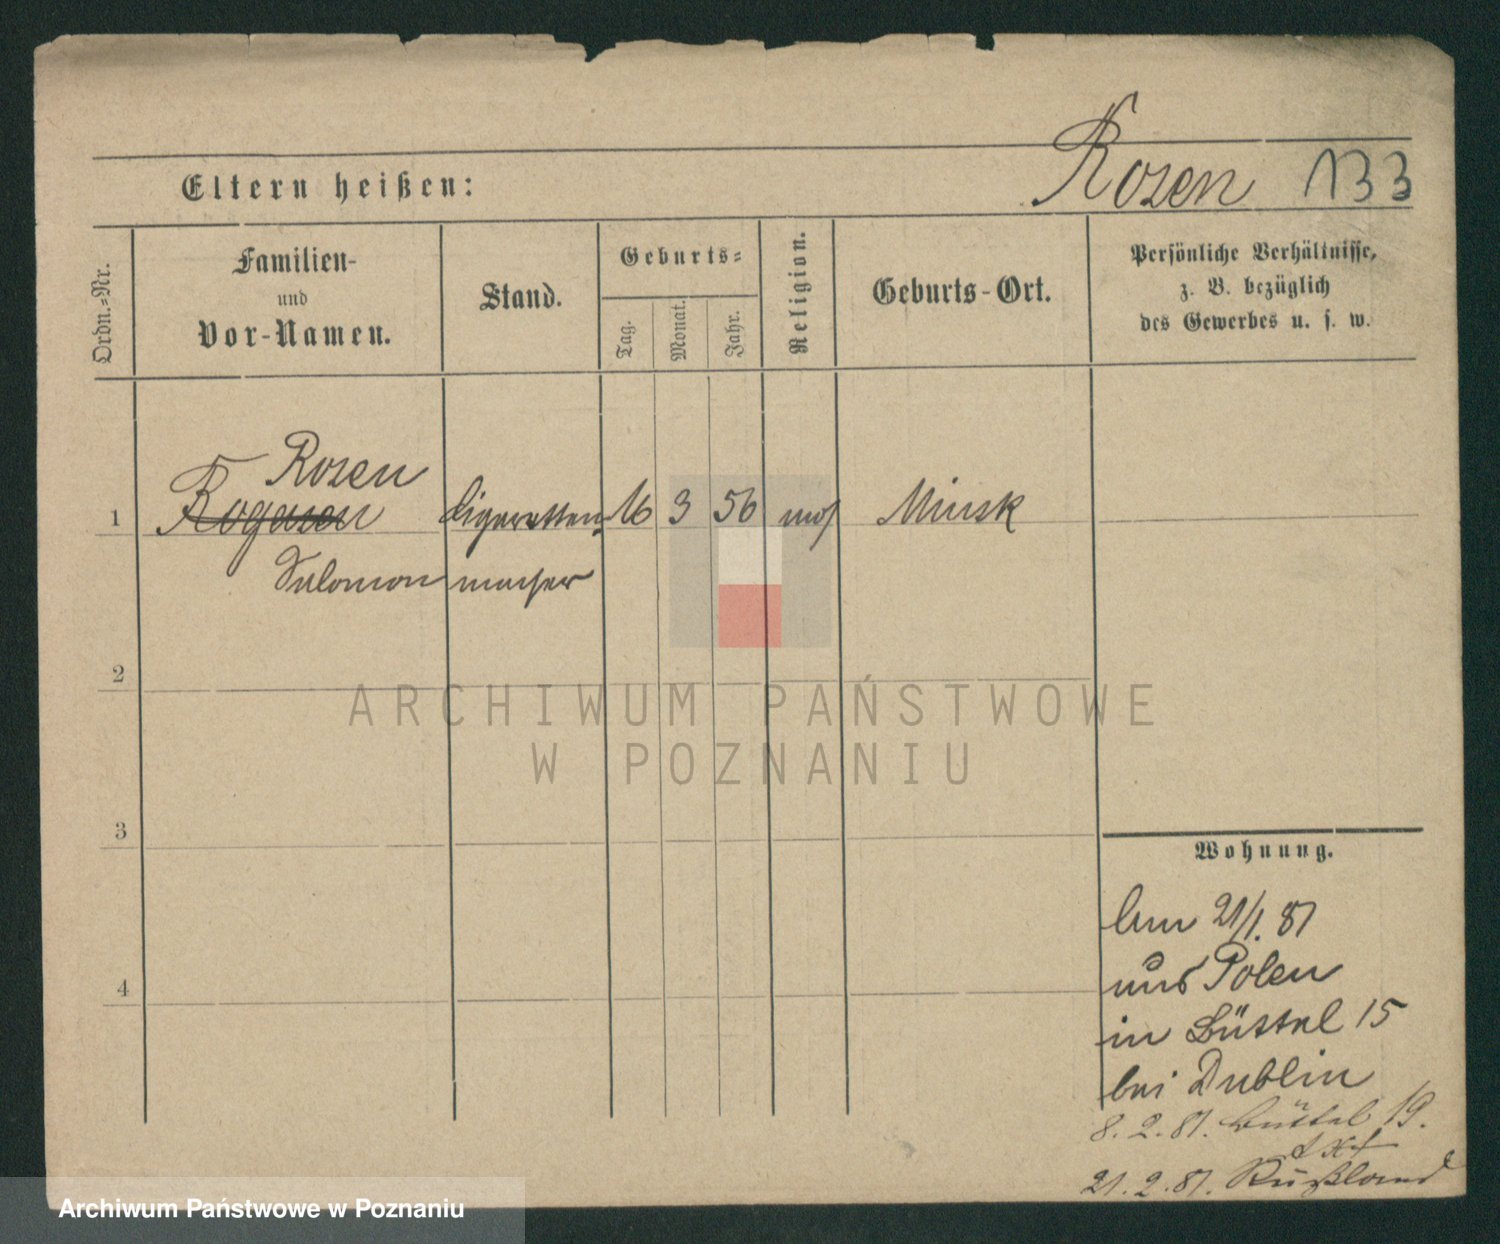 Rosen 133
Eltern heißen:
Ordn.-Nr.
Familien-
und
Vor-Namen.
Stand.
Geburts-
Tag.
Monat.
Jahr.
Religion.
Geburts-Ort.
Persönliche Verhältnisse,
z. B. bezüglich
des Gewerbes u. s. w.
Rosen
1 Rogasen Cigaretten- 16 3 56 mos Minsk
Salomon macher
2
3
4
Wohnung.
Am 21/1. 81
aus Polen
in Büttel 15
bei Dublin
8. 2. 81. Büttel 19.
21. 2. 81. Rußland
ARCHIWUM PAŃSTWOWE
W POZNANIU
Archiwum Państwowe w Poznaniu